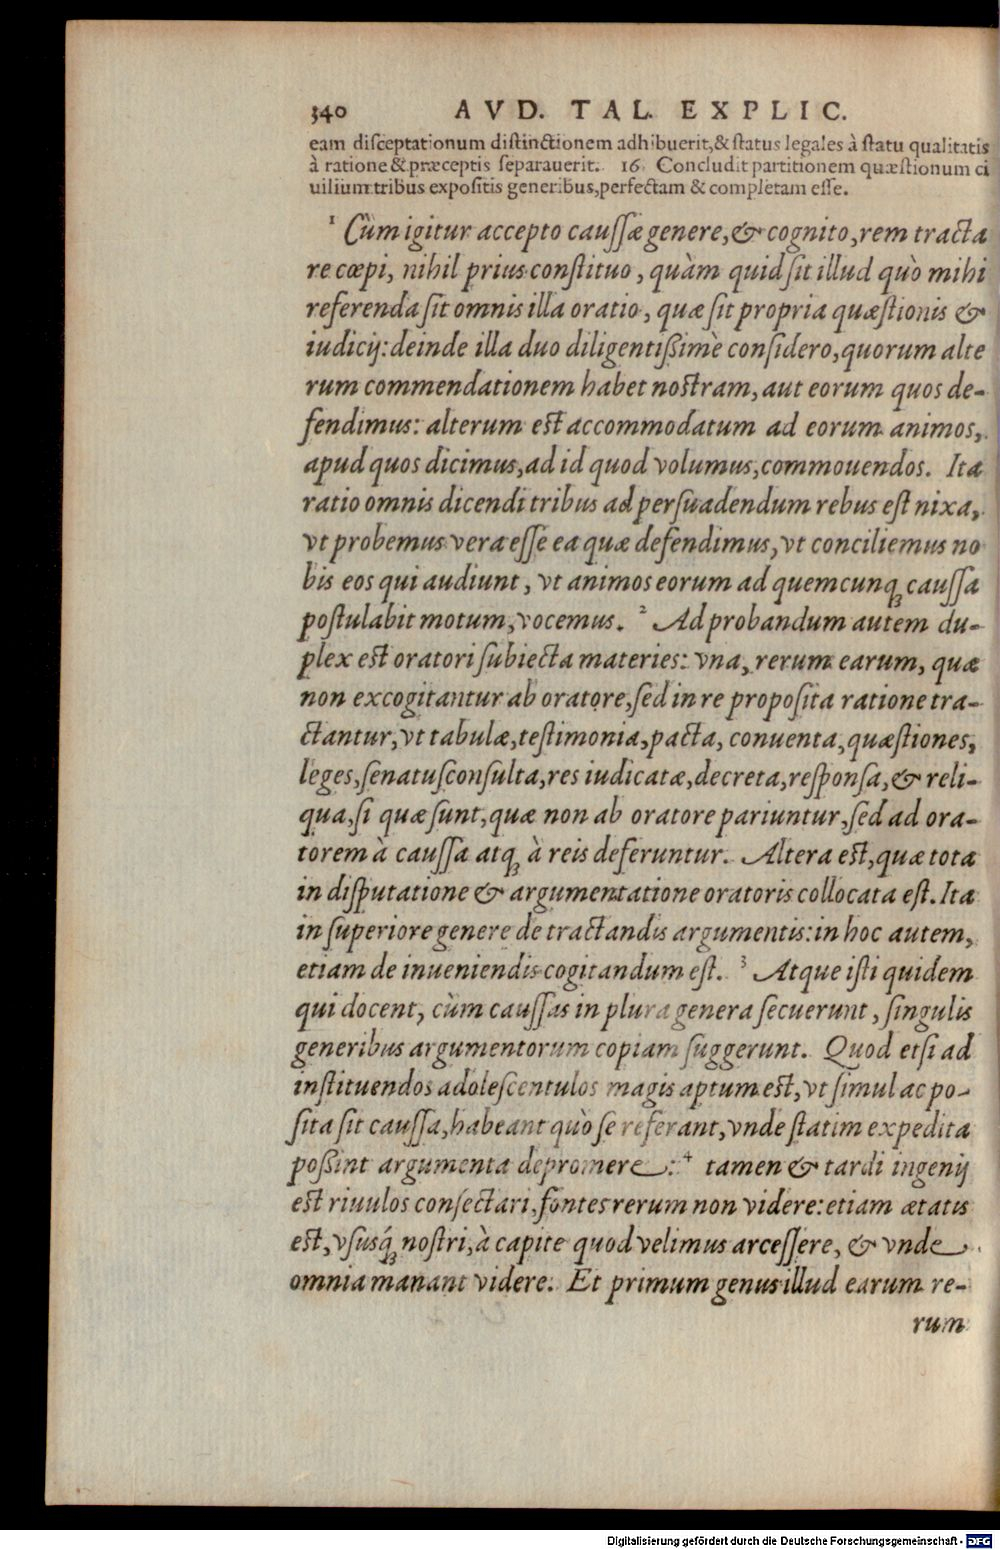 340 AVD. TAL. EXPLIC.
eam disceptationum distinctionem adhibuerit,& status legales à statu qualitatis
à ratione & præceptis separauerit. 16. Concludit partitionem quæstionum ci
uilium tribus expositis generibus, perfectam & completam esse.
¹ Cùm igitur accepto caussæ genere, & cognito, rem tracta
re cœpi, nihil prius constituo, quàm quid sit illud quò mihi
referenda sit omnis illa oratio, quæ sit propria quæstionis &
iudicij: deinde illa duo diligentißimè considero, quorum alte
rum commendationem habet nostram, aut eorum quos de-
fendimus: alterum est accommodatum ad eorum animos,
apud quos dicimus, ad id quod volumus, commouendos. Ita
ratio omnis dicendi tribus ad persuadendum rebus est nixa,
vt probemus vera esse ea quæ defendimus, vt conciliemus no
bis eos qui audiunt, vt animos eorum ad quemcunq; caussa
postulabit motum, vocemus. ² Ad probandum autem du-
plex est oratori subiecta materies: vna, rerum earum, quæ
non excogitantur ab oratore, sed in re proposita ratione tra-
ctantur, vt tabulæ, testimonia, pacta, conuenta, quæstiones,
leges, senatusconsulta, res iudicatæ, decreta, responsa, & reli-
qua, si quæ sunt, quæ non ab oratore pariuntur, sed ad ora-
torem à caussa atq; à reis deferuntur. Altera est, quæ tota
in disputatione & argumentatione oratoris collocata est. Ita
in superiore genere de tractandis argumentis: in hoc autem,
etiam de inueniendis cogitandum est. ³ Atque isti quidem
qui docent, cùm caussas in plura genera secuerunt, singulis
generibus argumentorum copiam suggerunt. Quod etsi ad
instituendos adolescentulos magis aptum est, vt simul ac po-
sita sit caussa, habeant quò se referant, vnde statim expedita
poßint argumenta depromere: ⁴ tamen & tardi ingenij
est riuulos consectari, fontes rerum non videre: etiam ætatis
est, vsusq́; nostri, à capite quod velimus arcessere, & vnde
omnia manant videre. Et primum genus illud earum re-
rum
Digitalisierung gefördert durch die Deutsche Forschungsgemeinschaft - DFG